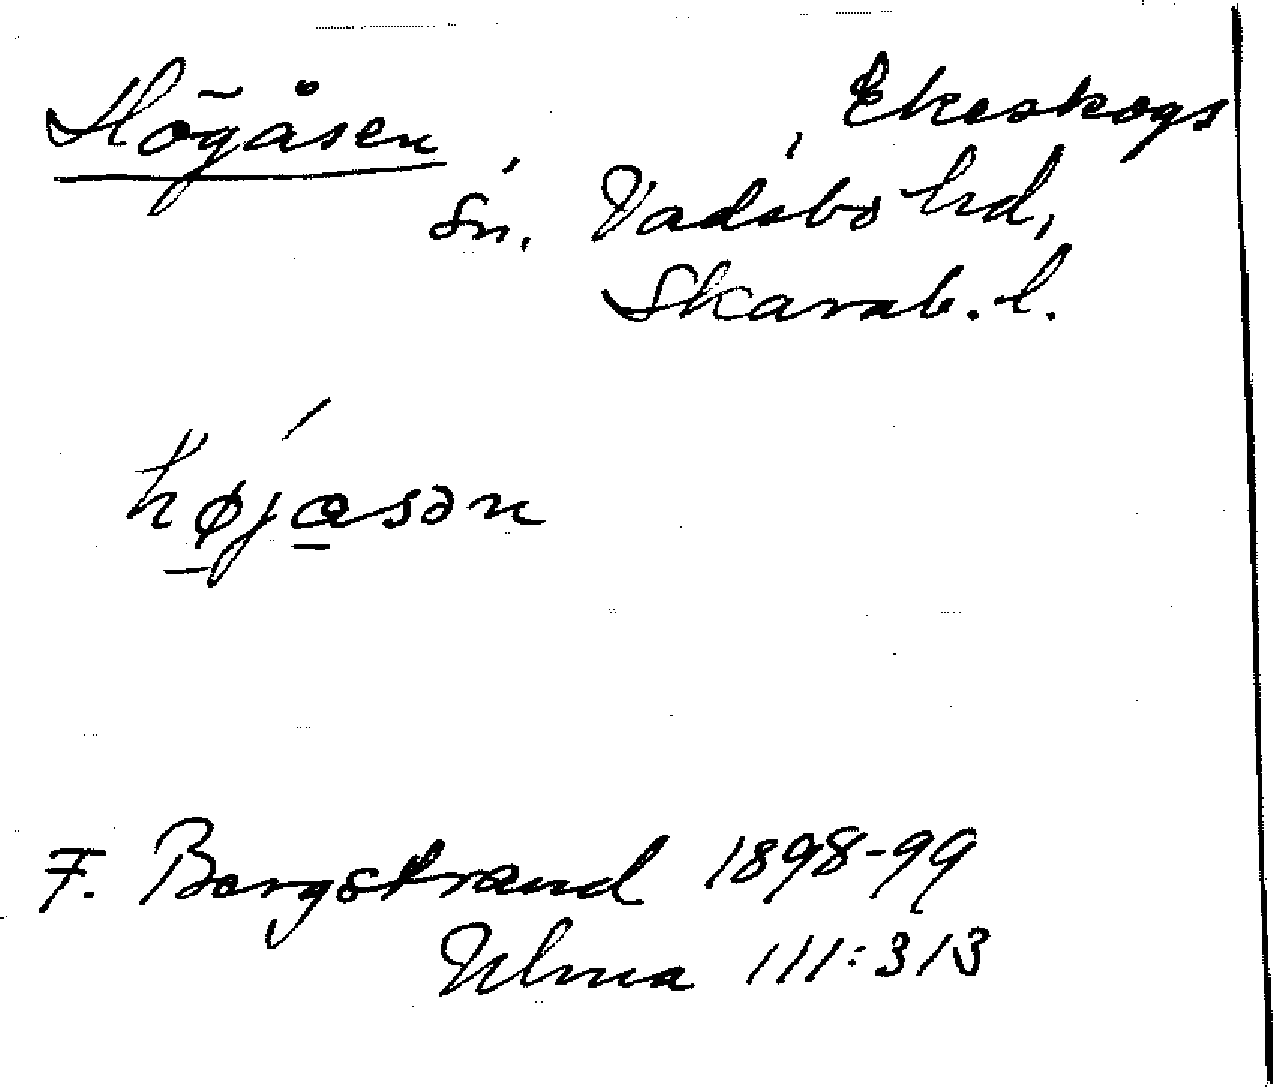 Högåsen, Ekeskogs
sn. Vadsbo hd,
Skarab. l.
hø̠ja̠sən
F. Bergstrand 1898-99
Ulma 111:313